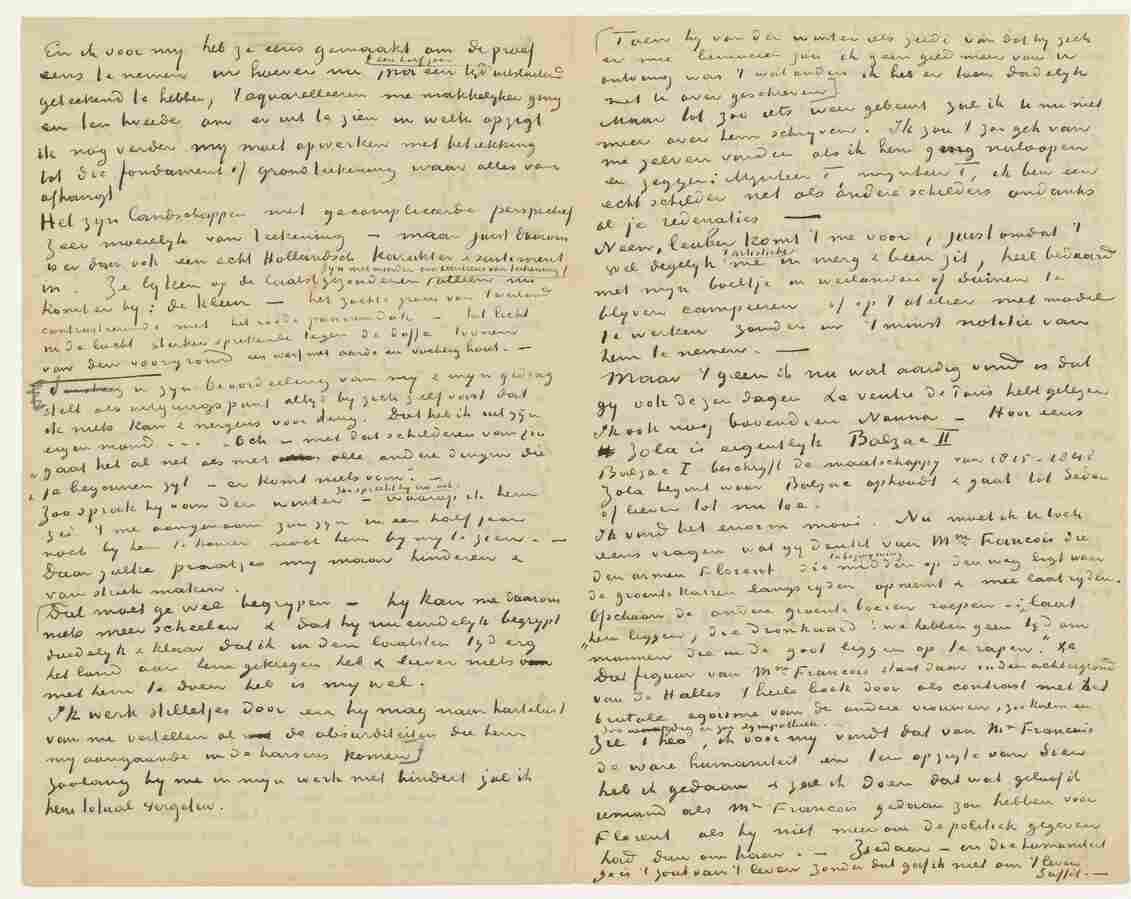 En ik voor my heb ze eens gemaakt om de proef
eens te nemen in hoever nu, na een half jaar een tyd uitsluitend
geteekend te hebben, 't aquarelleeren me makkelyker ging
en ten tweede om er uit te zien in welk opzigt
ik nog verder my moet opwerken met betrekking
tot die fondament of grondteekening waar alles van
afhangt
Het zyn landschappen met gecompliceerde perspectief
zeer moeielyk van teekening – maar juist daarom
is er dan ook een echt Hollandsch karakter & sentiment
in. Ze lyken op de laatst gezondenen & zyn niet minder consciencieus van teekening alleen nu
komt er by: de kleur – het zachte groen van 't weiland
contrasteerende met het roode pannendak – het licht
in de lucht sterker sprekende tegen de doffe toonen
van den voorgrond een werf met aarde en vochtig hout. –
in zyn beoordeeling van my & myn gedrag
stelt als uitgangspunt altyd by zich zelf vast dat
ik niets kan & nergens voor deug. Dat heb ik uit zyn
eigen mond ... och – met dat schilderen van jou
„gaat het al net als met alle andere dingen die
„je begonnen zyt – er komt niets van. –
Zoo sprak hy van den winter – Zoo spreekt hy nu ook – waarop ik hem
zei 't me aangenaam zou zyn in een half jaar
noch by hem te komen noch hem by my te zien. –
Daar zulke praatjes my maar hinderen &
van streek maken.
Dat moet ge wel begrypen – hy kan me daarom
niets meer scheelen & dat hy nu eindelyk begrypt
duidelyk & klaar dat ik in den laatsten tyd erg
het land aan hem gekregen heb & liever niets
met hem te doen heb is my wel.
Ik werk stilletjes door en hy mag naar hartelust
van me vertellen al de absurditeiten die hem
my aangaande in de harsens komen
Zoolang hy me in myn werk niet hindert zal ik
hem totaal vergeten.
Toen hy van den winter eens zeide van dat hy zich
er mee bemoeien zou ik geen geld meer van u
ontving was 't wat anders ik heb er toen dadelyk
met u over geschreven
Maar tot zoo iets weer gebeurt zal ik u nu niet
meer over hem schryven. Ik zou 't zou gek van
me zelven vinden als ik hem ging naloopen
en zeggen: Mynheer T mynheer T, ik ben een
echt schilder net als andere schilders ondanks
al je redenaties —
Neen, leuker komt 't me voor, juist omdat 't
wel degelyk 't artistieke me in merg & been zit, heel bedaard
met myn boeltje in weilanden of duinen te
blyven campeeren of op 't atelier met model
te werken zonder in 't minst notitie van
hem te nemen. —
Maar 't geen ik nu wat aardig vond is dat
gy ook dezer dagen Le ventre de Paris hebt gelezen
Ik ook nog bovendien Nanna – Hoor eens
Zola is eigentlyk Balzac II
Balzac I beschryft de maatschappy van 1815–1848
Zola begint waar Balzac ophoudt & gaat tot Sedan
of liever tot nu toe.
Ik vind het enorm mooi. Nu moet ik u toch
eens vragen wat gy denkt van Mme Francois die
den armen Florent die midden in bezwyming op den weg ligt waar
de groente karren langsryden opneemt & mee laat ryden.
Ofschoon de andere groente boeren roepen – „laat
„hem liggen, die dronkaard! we hebben geen tyd om
„mannen die in de goot liggen op te rapen."
Dat figuur van Mme Francois staat daar in den achtergrond
van de Halles 't heele boek door als contrast met het
brutale egoisme van de andere vrouwen, zoo kalm en
zoo waardig en zoo sympathiek.
Zie Theo, ik voor my vindt dat van Me Francois
de ware humaniteit en ten opzigte van Sien
heb ik gedaan & zal ik doen dat wat geloof ik
iemand als Me Francois gedaan zou hebben voor
Florent als hy niet meer om de politiek gegeven
had dan om haar. – Ziedaar – en die humaniteit
is 't zout van 't leven zonder dat gaf ik niet om 't leven
Suffit. —